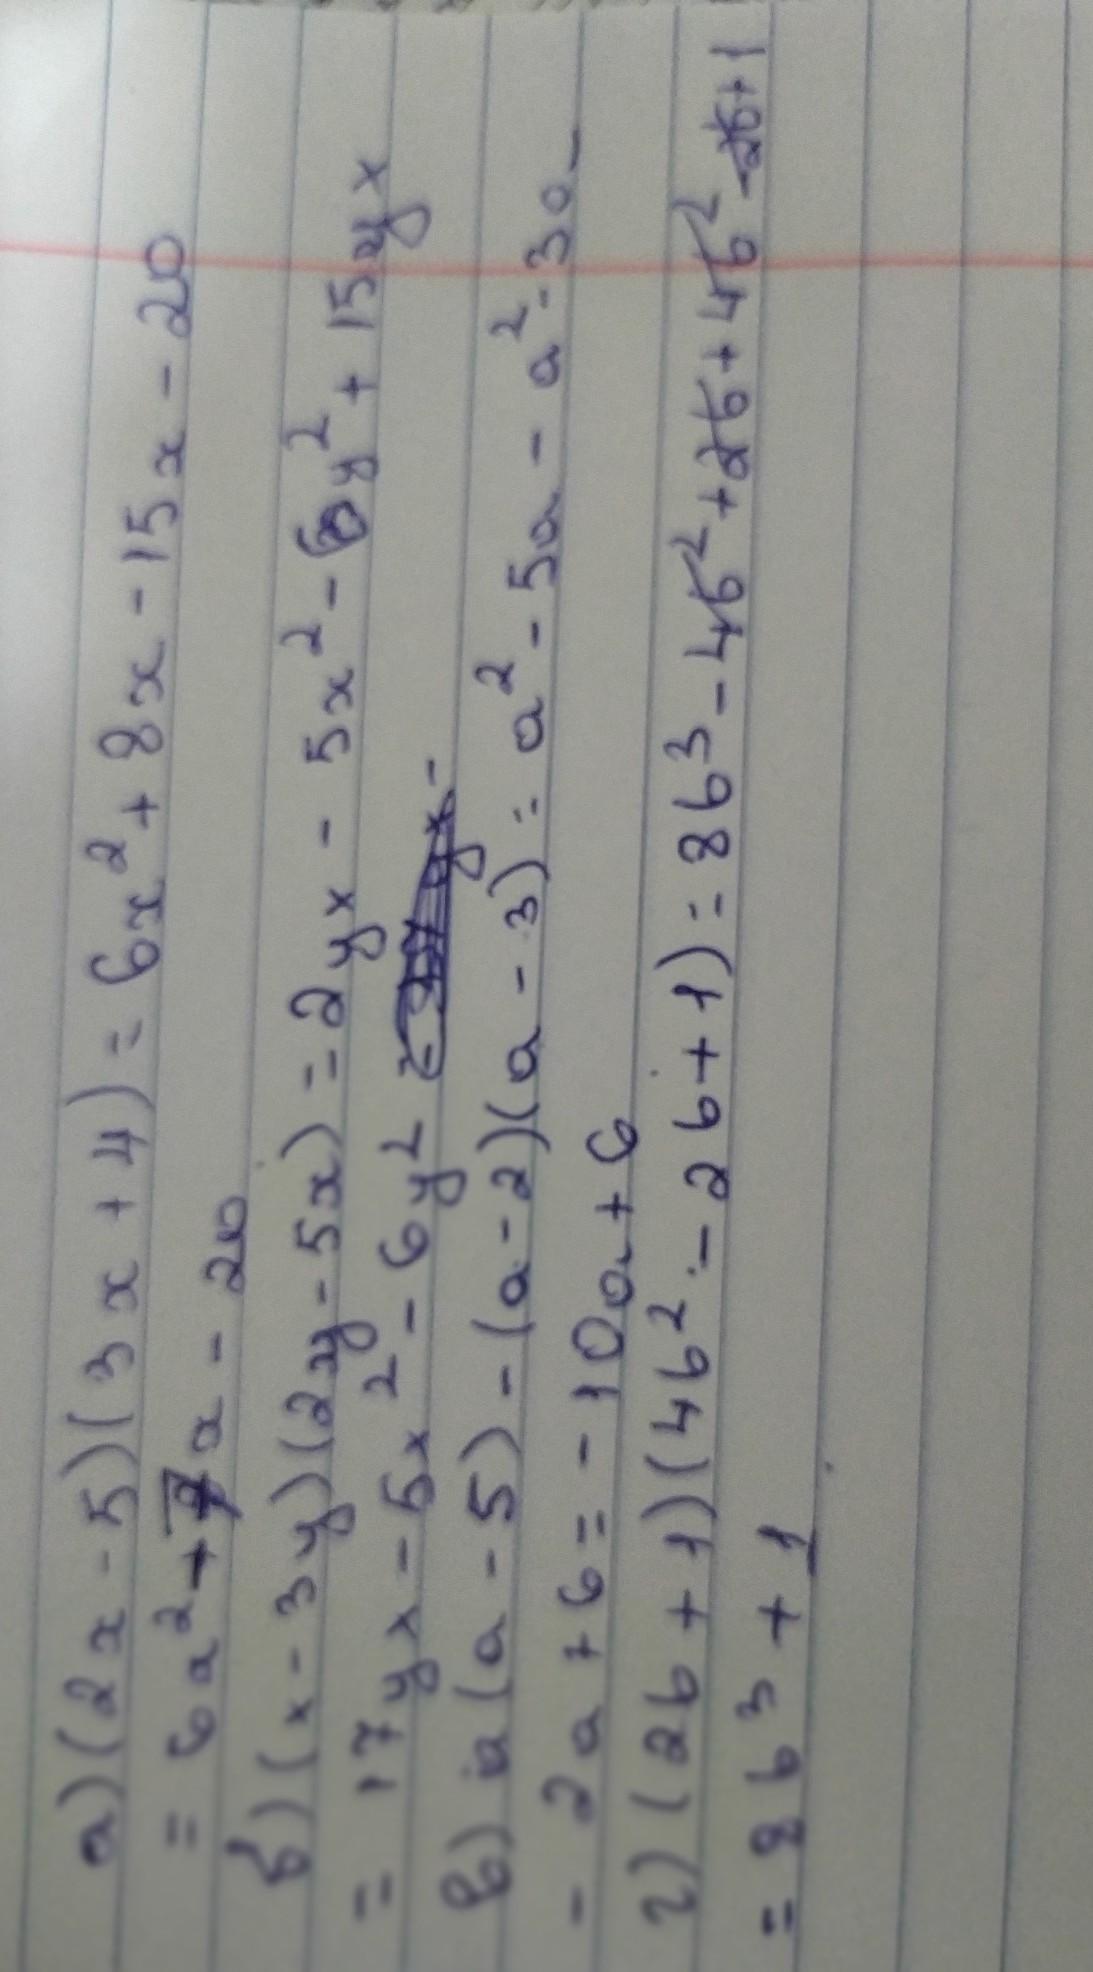 а) (2x - 5)(3x + 4) = 6x² + 8x - 15x - 20
= 6x² + 7x - 20
б) (x - 3y)(2y - 5x) = 2yx - 5x² - 6y² + 15yx
= 17yx - 5x² - 6y²
в) a(a - 5) - (a - 2)(a - 3) = a² - 5a - a² - 3a -
- 2a + 6 = - 10a + 6
г) (2b + 1)(4b² - 2b + 1) = 8b³ - 4b² + 2b + 4b² - 2b + 1
= 8b³ + 1